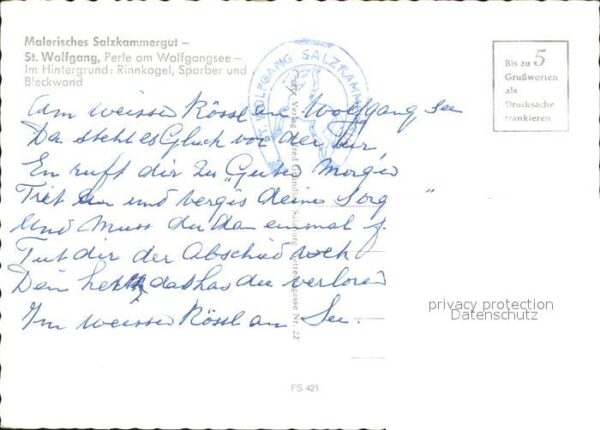 Malerisches Salzkammergut –
St. Wolfgang, Perle am Wolfgangsee –
Im Hintergrund: Rinnkogel, Sparber und
Bleckwand
ST. WOLFGANG SALZKAMMERGUT
Bis zu 5
Grußworten
als
Drucksache
frankieren
Am weissen Rössl am Wolfgang See
Da steht es Glück vor der Tür,
En ruft dir zu "Guten Morgen
Tret ein und vergis deine Sorg "
Und Muss du dan einmal f.
Tut dir der Abschied weh
Dein herz das has du verloren
Im weissen Rössl am See.
privacy protection
Datenschutz
FS 421